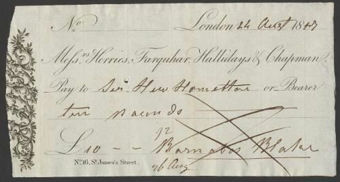 No London 24 Augst 18
Messrs Herries, Farquhar, Hallidays & Chapman
Pay to Sir or Bearer
ten pounds
£10 -- Barnabas Blake
No. 16, St. James's Street. 26 Aug